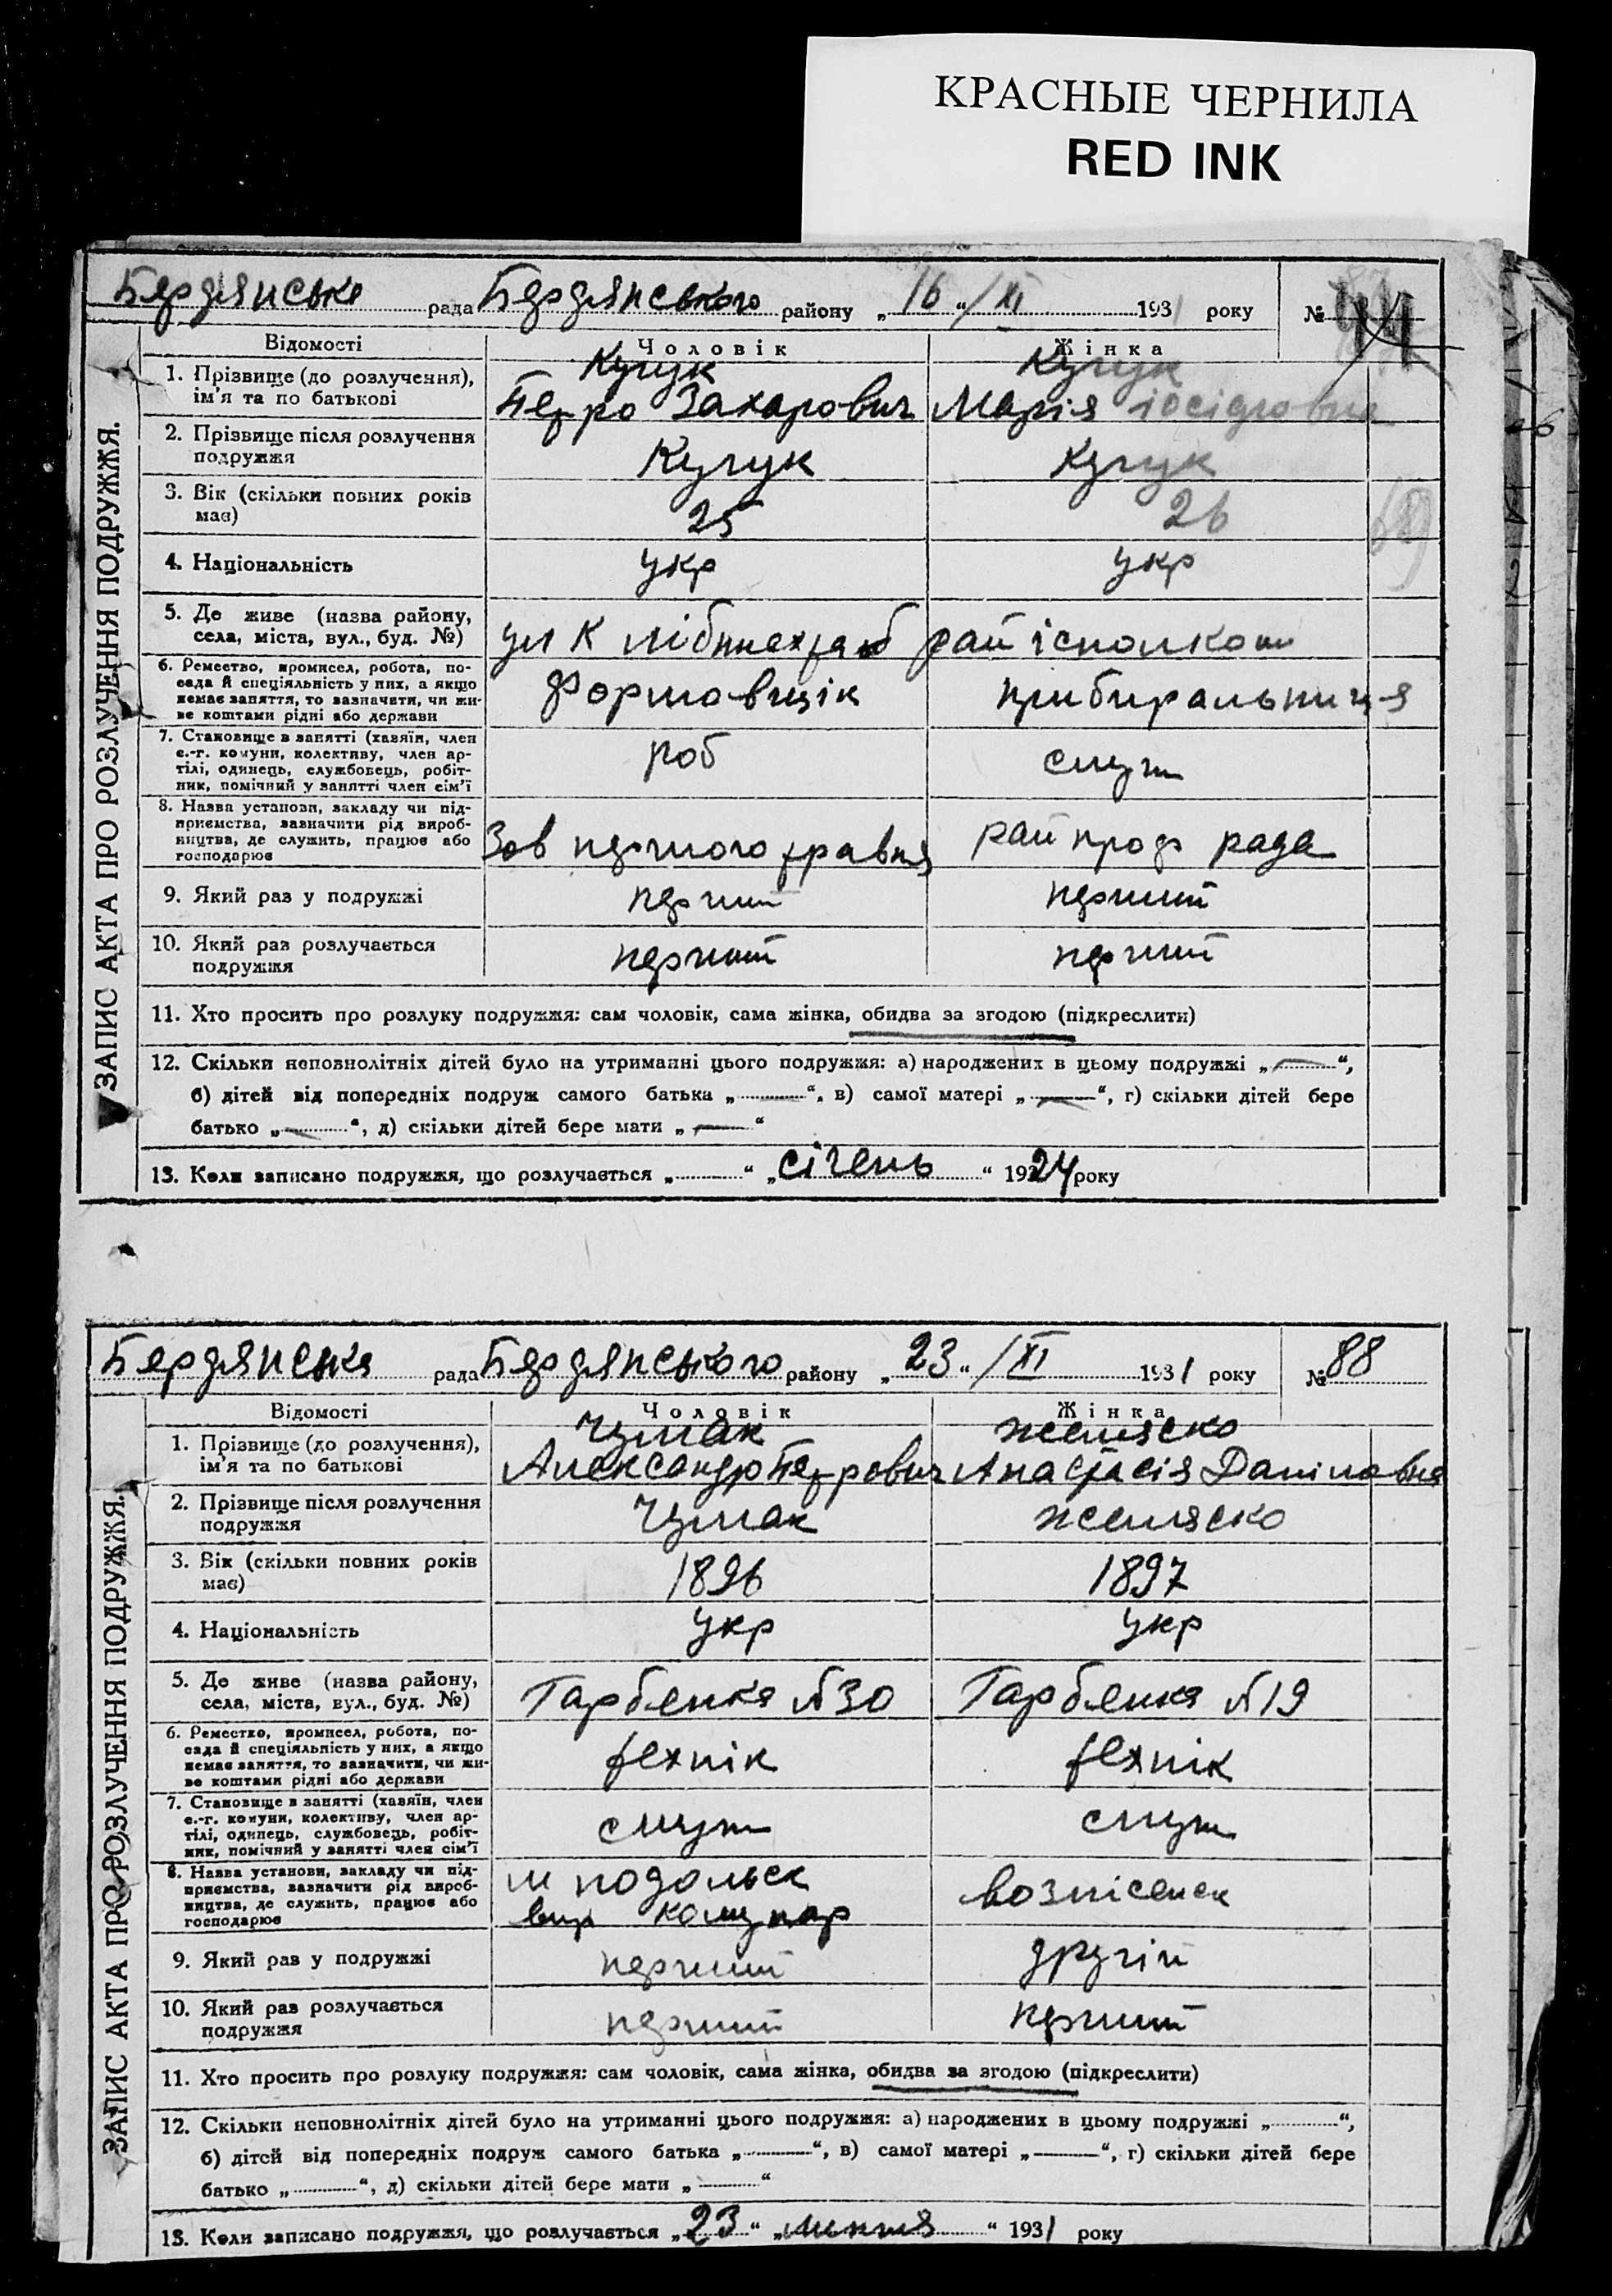 КРАСНЫЕ ЧЕРНИЛА
RED INK
Бердянська рада Бердянського району „16“ /XI 1931 року №
ЗАПИС АКТА ПРО РОЗЛУЧЕННЯ ПОДРУЖЖЯ.
Відомості Чоловік Жінка
1. Прізвище (до розлучення), Кучук Кучук
ім'я та по батькові Петро Захарович Марія
2. Прізвище після розлучення
подружжя Кучук Кучук
3. Вік (скільки повних років
має) 25 26
4. Національність укр укр
5. Де живе (назва району,
села, міста, вул., буд. №) ул К райісполком
6. Ремество, промисел, робота, по-
сада й спеціяльність у них, а якщо
немає заняття, то зазначити, чи жи-
ве коштами рідні або держави Формовщік прибиральниця
7. Становище в занятті (хазяїн, член
с.-г. комуни, колективу, член ар-
тілі, одинець, службовець, робіт-
ник, помічний у занятті член сім'ї роб служ
8. Назва установи, закладу чи під-
приємства, зазначити рід вироб-
ництва, де служить, працює або
господарює Зов першого травня рай проф рада
9. Який раз у подружжі перший перший
10. Який раз розлучається
подружжя перший перший
11. Хто просить про розлуку подружжя: сам чоловік, сама жінка, обидва за згодою (підкреслити)
12. Скільки неповнолітніх дітей було на утриманні цього подружжя: а) народжених в цьому подружжі „—“,
б) дітей від попередніх подруж самого батька „—“, в) самої матері „—“, г) скільки дітей бере
батько „—“, д) скільки дітей бере мати „—“
13. Коли записано подружжя, що розлучається „ “ „січень“ 1924 року
Бердянська рада Бердянського району „23“ /XI 1931 року № 88
ЗАПИС АКТА ПРО РОЗЛУЧЕННЯ ПОДРУЖЖЯ.
Відомості Чоловік Жінка
1. Прізвище (до розлучення), Чумак
ім'я та по батькові Александр Петрович Анастасія Даніловна
2. Прізвище після розлучення
подружжя Чумак
3. Вік (скільки повних років
має) 1896 1897
4. Національність укр укр
5. Де живе (назва району,
села, міста, вул., буд. №) №30 №19
6. Ремество, промисел, робота, по-
сада й спеціяльність у них, а якщо
немає заняття, то зазначити, чи жи-
ве коштами рідні або держави технік технік
7. Становище в занятті (хазяїн, член
с.-г. комуни, колективу, член ар-
тілі, одинець, службовець, робіт-
ник, помічний у занятті член сім'ї служ служ
8. Назва установи, закладу чи під- м подольск
приємства, зазначити рід вироб-
ництва, де служить, працює або
господарює
9. Який раз у подружжі перший другій
10. Який раз розлучається
подружжя перший перший
11. Хто просить про розлуку подружжя: сам чоловік, сама жінка, обидва за згодою (підкреслити)
12. Скільки неповнолітніх дітей було на утриманні цього подружжя: а) народжених в цьому подружжі „ “,
б) дітей від попередніх подруж самого батька „ “, в) самої матері „ “, г) скільки дітей бере
батько „ “, д) скільки дітей бере мати „ “
13. Коли записано подружжя, що розлучається „23“ „липня“ 1931 року